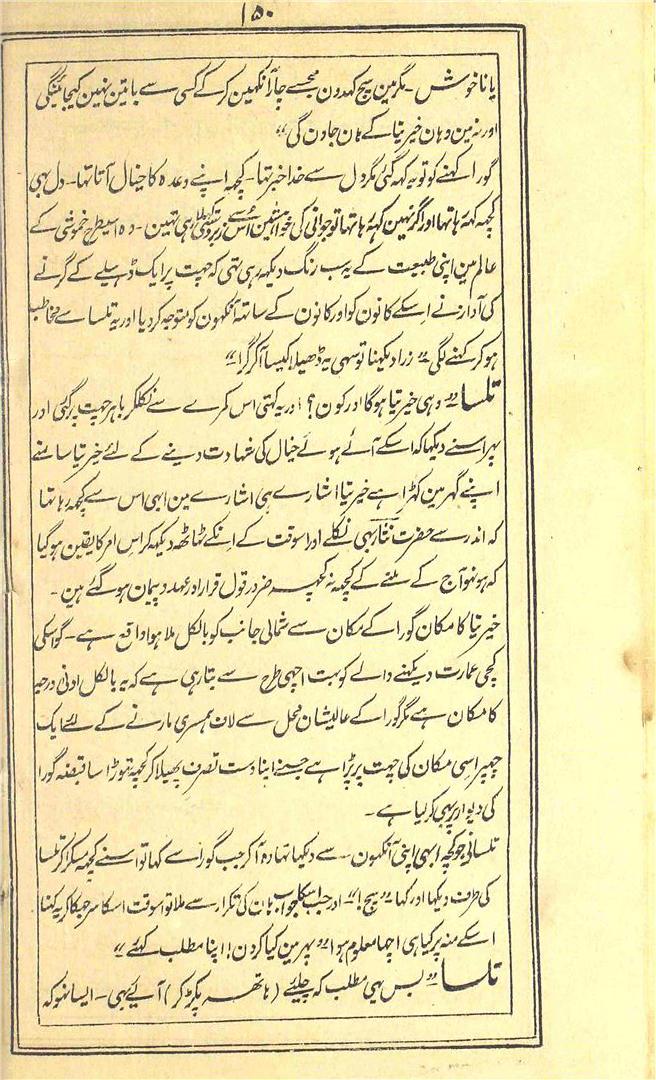 ۱۵۰
یا ناخوش ۔ مگر مین سچ کہدون مجھسے چار آنکھین کرکے کسی سے باتین نہین کیجائینگی
اور نہ مین وہان خیرتیا کے ہان جاون گی“
گورا کہنے کو تو یہ کہہ گئی مگر دل سے خدا خبر تہا ۔ کچھہ اپنے وعدہ کا خیال آتا تہا ۔ دل بہی
کچہہ کہہ رہا تہا اور اگر نہین کہہ رہا تہا تو جوانی کی خواہشین اُس سے زبردستی کہلا رہی تہین ۔ وہ اسیطرح خموشی کے
عالم مین اپنی طبیعت کے یہ سب رنگ دیکھہ رہی تہی کہ چہت پر ایک ڈہیلے کے گرنے
کی آواز نے اِسکے کانون کو اور کانون کے ساتہہ آنکہون کو متوجہ کر دیا اور یہ تلسا سے مخاطب
ہو کر کہنے لگی ”زرا دیکہنا تو سہی یہ ڈھیلا کیسا آکر گرا“
تلسا ”وہی خیرتیا ہوگا اور کون؟ اور یہ کہتی اس کمرے سے نکلکر باہر چہت پر گئی اور
پہر اسنے دیکہا کہ اسکے آئے ہوئے خیال کی شہادت دینے کے لئے خیرتیا سامنے
اپنے گہر مین کہڑا ہے خیرتیا اشارے ہی اشارے مین ابہی اس سے کچہہ کہہ رہا تہا
کہ اندر سے حضرت نثار بہی نکلے اور اسوقت کے انکے ٹہاٹھہ دیکہکر اِس امر کا یقین ہوگیا
کہ ہو نہو آج کے ملنے کے کچہہ نہ کچہہ ضرور قول قرار اور عہد و پیمان ہو گئے ہین ۔
خیرتیا کا مکان گورا کے مکان سے شمالی جانب کو بالکل ملا ہوا واقع ہے ۔ گو اسکی
کچی عمارت دیکہنے والے کو بہت اچہی طرح سے بتا رہی ہے کہ یہ بالکل ادنیٰ درجہ
کا مکان ہے مگر گورا کے عالیشان محل سے لاف ہمسری مارنے کے لئے ایک
چہپر اسی مکان کی چہت پر پڑا ہے جسنے اپنا دست تصرف پھیلا کر کچہہ تہوڑا سا قبضہ گورا
کی دیوار پر بہی کر لیا ہے ۔
تلسا نی جو کچہہ ابہی اپنی آنکہون سے دیکہا تہا وہ آکر جب گورا سے کہا تو اسنے کچہہ مسکرا کر تلسا
کی طرف دیکہا اور کہا ”سچ !“ اور جب اِسکا جواب ہان کی تکرار سے ملا تو اسوقت اسکا سر جہکا کر یہ کہنا
اسکے منہ پر کیا ہی اچہا معلوم ہوا ”پہر مین کیا کردن ! اپنا مطلب کہئے“
تلسا ”بس یہی مطلب کہ چلیئے (ہاتہہ پکڑ کر) آئیے بہی ۔ ایسا نہو کہ